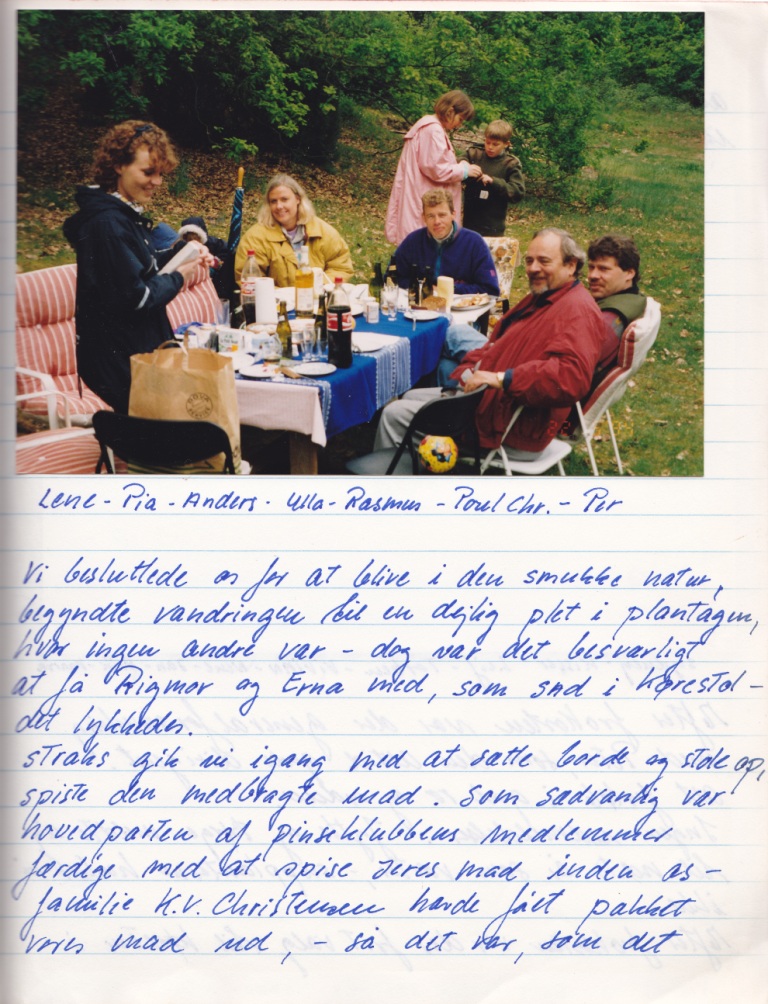 Lene - Pia - Anders - Ulla - Rasmus - Poul Chr. - Per
Vi besluttede os for at blive i den smukke natur,
begyndte vandringen til en dejlig plet i plantagen,
hvor ingen andre var - dog var det besværligt
at få Rigmor og Erna med, som sad i kørestol -
det lykkedes.
straks gik vi igang med at sætte borde og stole op,
spiste den medbragte mad. Som sædvanlig var
hovedparten af pinseklubbens medlemmer
færdige med at spise deres mad inden os -
familie K.V. Christensen havde fået pakket
vores mad ud, - så det var, som det